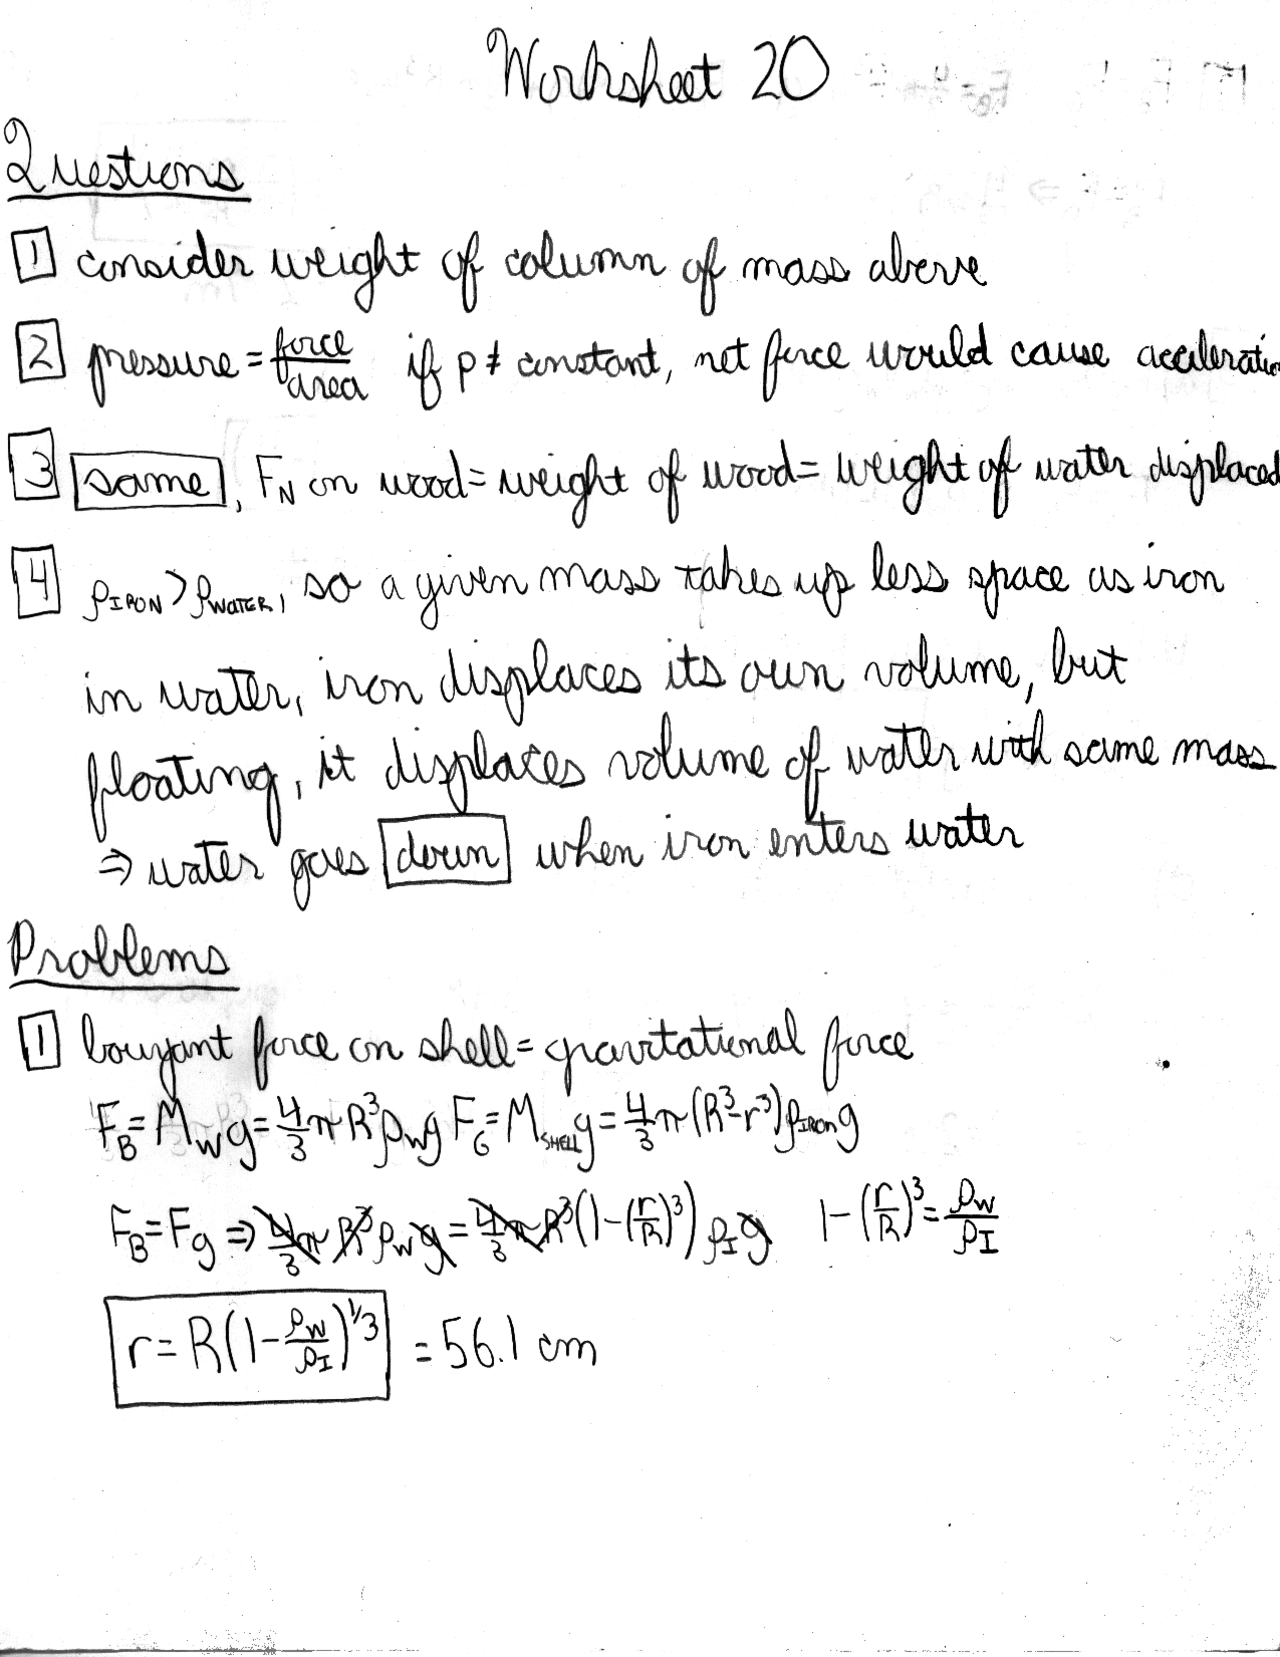 Worksheet 20
Questions
1 consider weight of column of mass above
2 pressure = force/area if p ≠ constant, net force would cause acceleratio
3 same, F_N on wood = weight of wood = weight of water displaced
4 ρ_IRON > ρ_WATER, so a given mass takes up less space as iron
in water, iron displaces its own volume, but
floating, it displaces volume of water with same mass
⇒ water goes down when iron enters water
Problems
1 bouyant force on shell = gravitational force
F_B = M_W g = 4/3 π R³ ρ_W g F_G = M_SHELL g = 4/3 π (R³ - r³) ρ_IRON g
F_B = F_g ⇒ 4/3 π R³ ρ_W g = 4/3 π R³ (1 - (r/R)³) ρ_I g 1 - (r/R)³ = ρ_W/ρ_I
r = R (1 - ρ_W/ρ_I)^1/3 = 56.1 cm